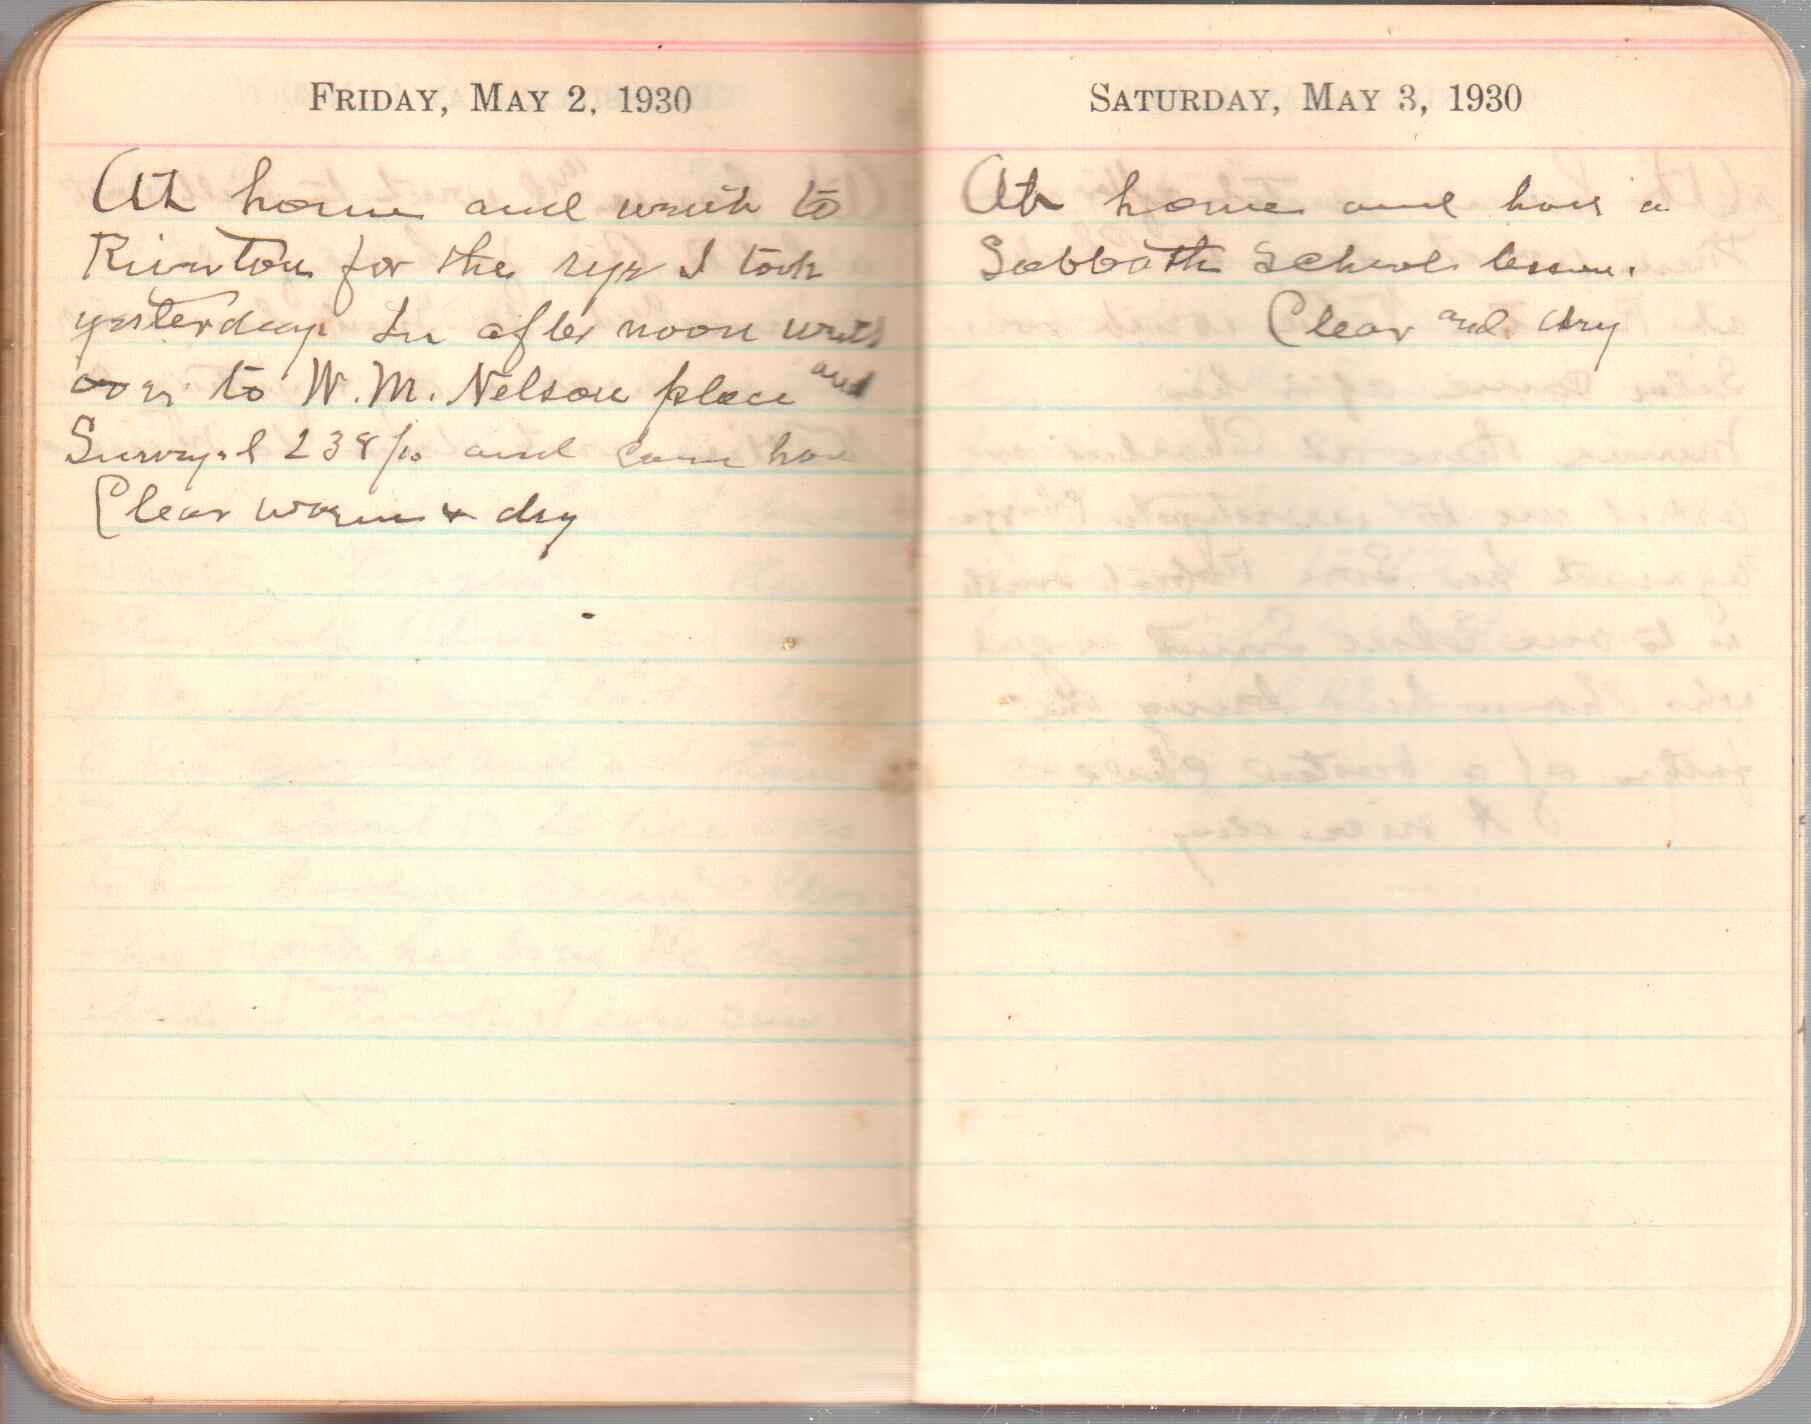 FRIDAY, MAY 2, 1930
At home and went to
Riverton for the rye I took
yesterday. In after noon went
over to W. M. Nelson place and
Surveyed and came home
Clear warm & dry
SATURDAY, MAY 3, 1930
At home and had a
Sabbath School lesson.
Clear and dry